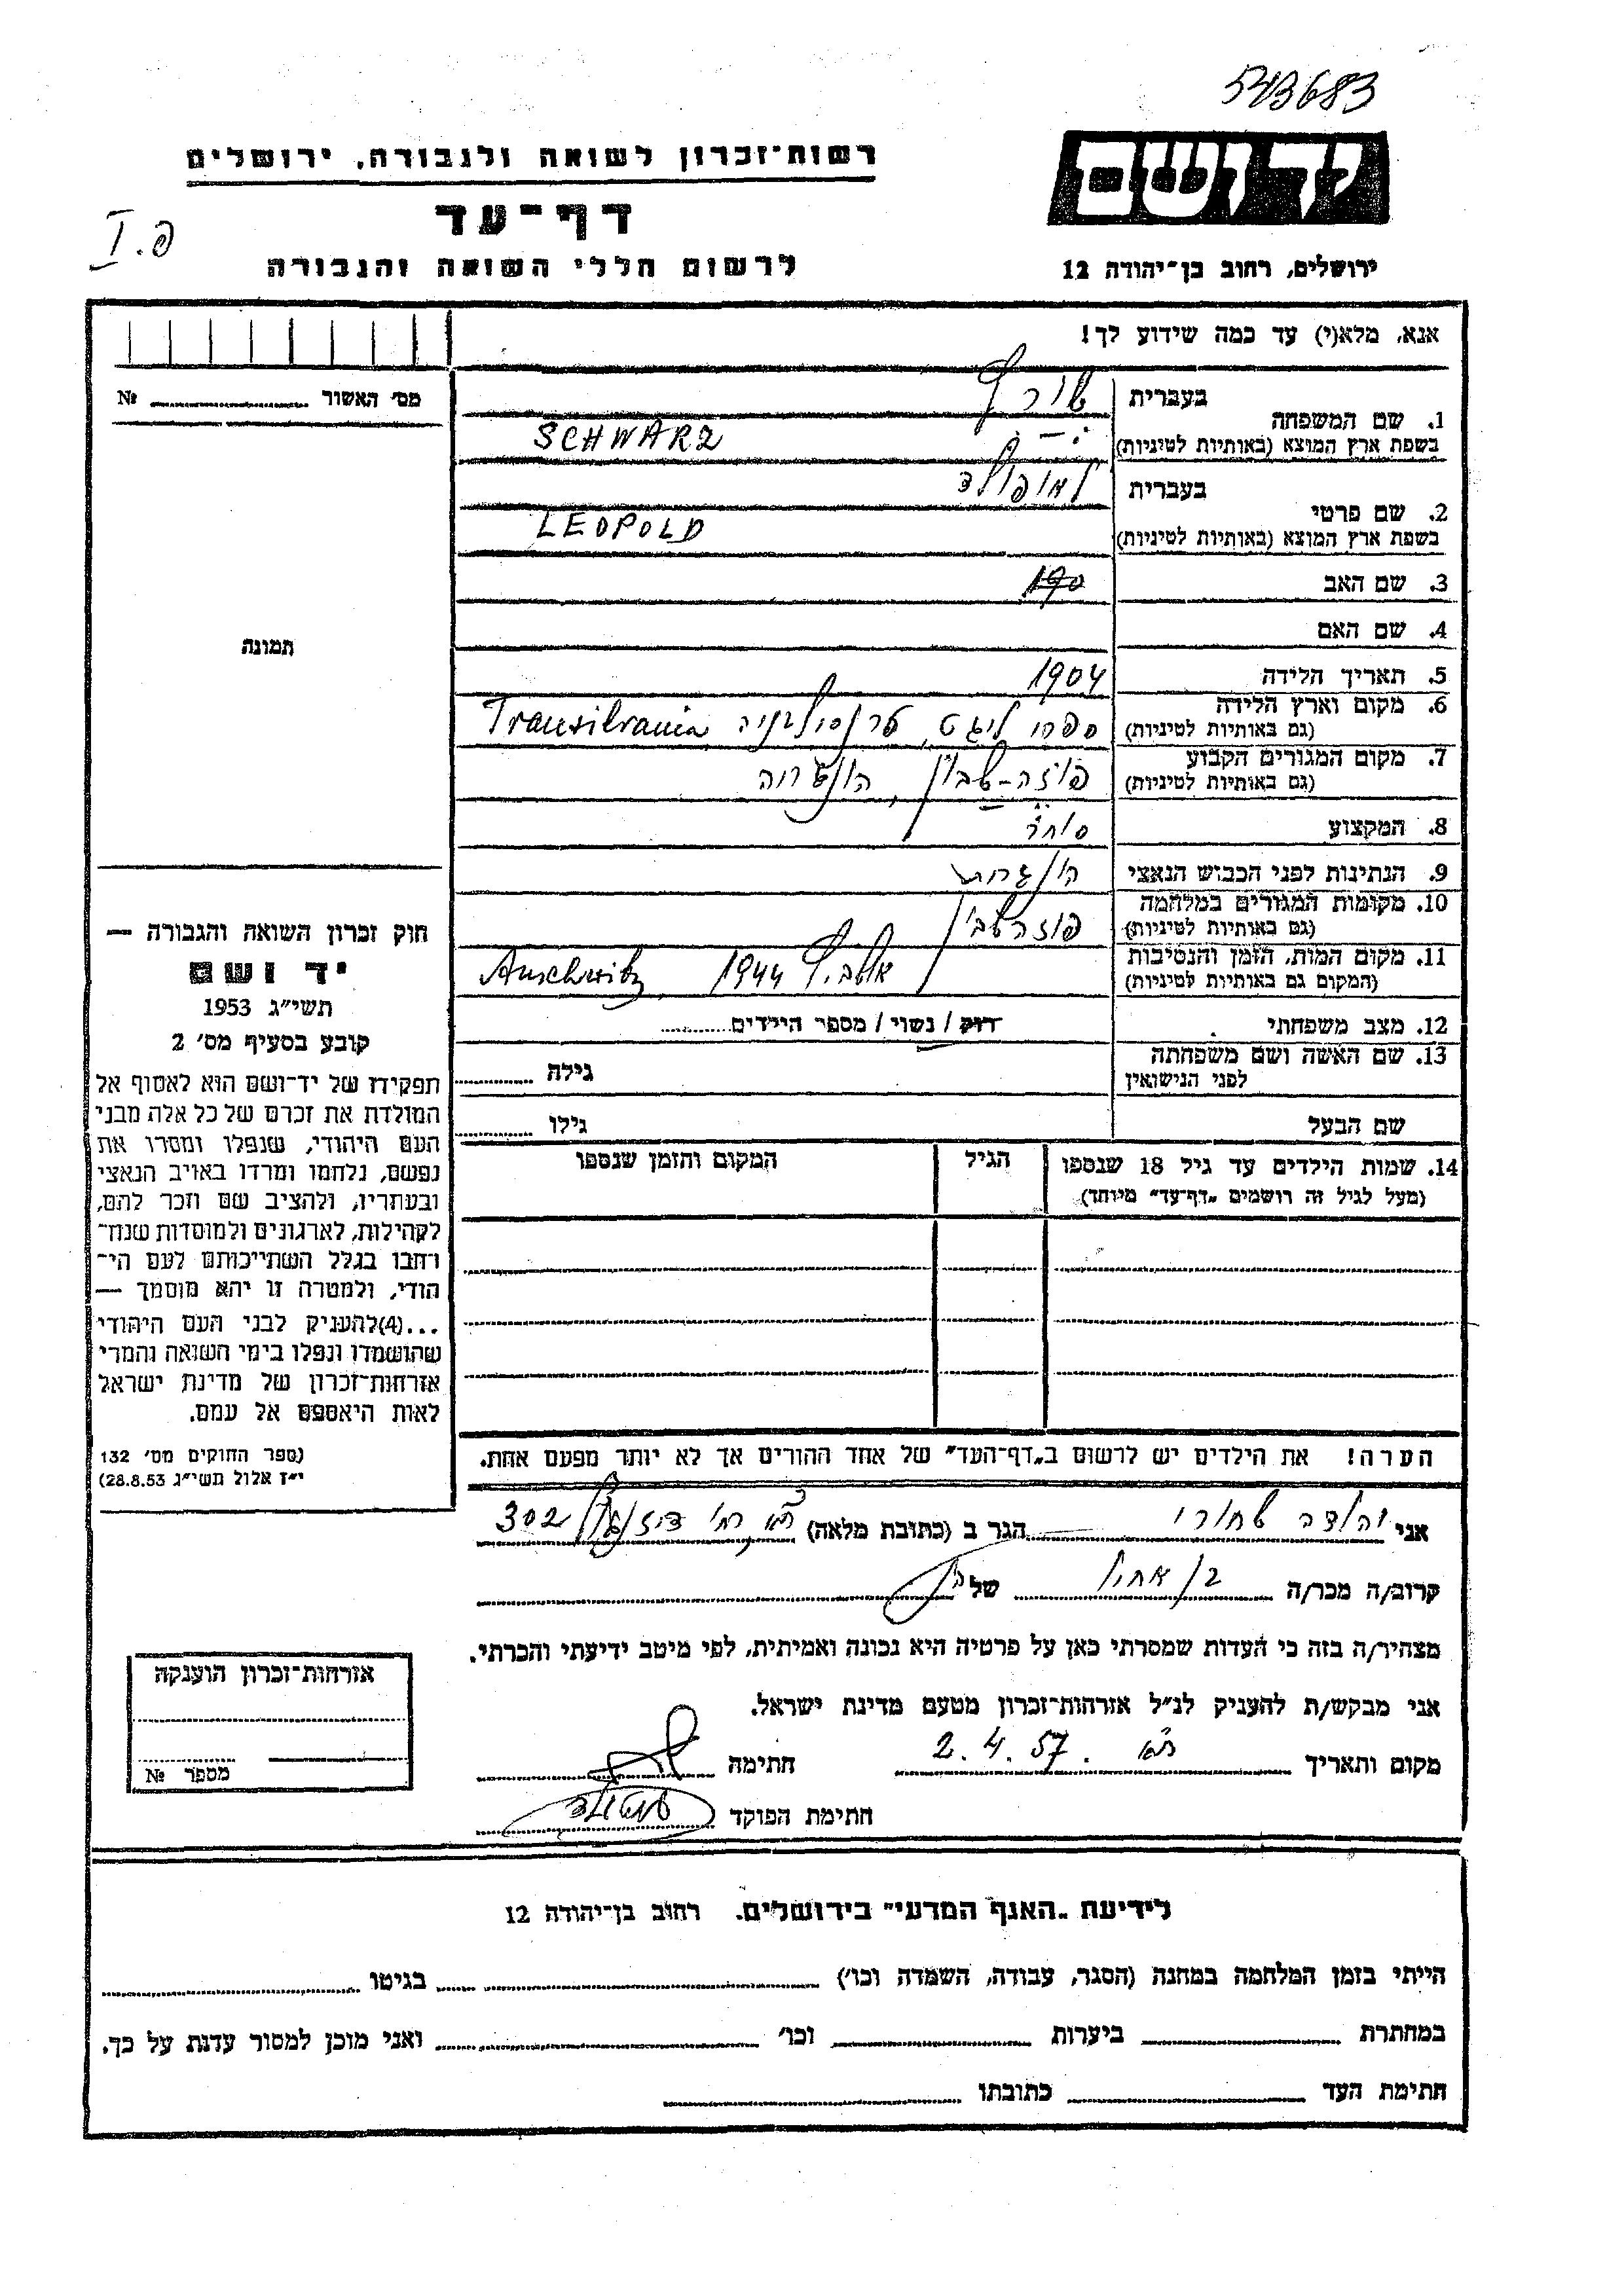 543683
יד ושם
רשות־זכרון לשואה ולגבורה, ירושלים
דף־עד
פ. I
לרשום חללי השואה והגבורה
ירושלים, רחוב בן־יהודה 12
אנא, מלא(י) עד כמה שידוע לך!
מס׳ האשור № 
1. שם המשפחה
בעברית שורץ
בשפת ארץ המוצא (באותיות לטיניות) SCHWARZ
2. שם פרטי
בעברית לאופולד
בשפת ארץ המוצא (באותיות לטיניות) LEOPOLD
3. שם האב
4. שם האם
תמונה
5. תאריך הלידה 1904
6. מקום וארץ הלידה
(גם באותיות לטיניות) טרנסילבניה Transilvania
7. מקום המגורים הקבוע
(גם באותיות לטיניות) הונגריה
8. המקצוע סוחר
9. הנתינות לפני הכבוש הנאצי הונגרית
10. מקומות המגורים במלחמה
(גם באותיות לטיניות)
11. מקום המות, הזמן והנסיבות
(המקום גם באותיות לטיניות) אושביץ 1944 Auschwitz
12. מצב משפחתי רוק / נשוי / מספר הילדים
13. שם האשה ושם משפחתה
לפני הנישואין גילה
שם הבעל גילו
14. שמות הילדים עד גיל 18 שנספו
(מעל לגיל זה רושמים „דף־עד״ מיוחד)
הגיל
המקום והזמן שנספו
הערה! את הילדים יש לרשום ב„דף־העד״ של אחד ההורים אך לא יותר מפעם אחת.
חוק זכרון השואה והגבורה —
יד ושם
תשי״ג 1953
קובע בסעיף מס׳ 2
תפקידו של יד־ושם הוא לאסוף אל
המולדת את זכרם של כל אלה מבני
העם היהודי, שנפלו ומסרו את
נפשם, נלחמו ומרדו באויב הנאצי
ובעוזריו, ולהציב שם וזכר להם,
לקהילות, לארגונים ולמוסדות שנח־
רבו בגלל השתייכותם לעם הי־
הודי, ולמטרה זו יהא מוסמך —
...(4)להעניק לבני העם היהודי
שהושמדו ונפלו בימי השואה והמרי
אזרחות־זכרון של מדינת ישראל
לאות היאספם אל עמם.
(ספר החוקים מס׳ 132
י״ז אלול תשי״ג 28.8.53)
אני יהודה שחורי הגר ב (כתובת מלאה) ת״א, רח׳ דיזנגוף 302
קרוב/ה מכר/ה בן אחיו של
מצהיר/ה בזה כי העדות שמסרתי כאן על פרטיה היא נכונה ואמיתית, לפי מיטב ידיעתי והכרתי.
אני מבקש/ת להעניק לנ״ל אזרחות־זכרון מטעם מדינת ישראל.
מקום ותאריך ת״א 2.4.57 חתימה
חתימת הפוקד
אזרחות־זכרון הוענקה
מספר №
לידיעת „האגף המדעי״ בירושלים. רחוב בן־יהודה 12
הייתי בזמן המלחמה במחנה (הסגר, עבודה, השמדה וכו׳) בגיטו
במחתרת ביערות וכו׳ ואני מוכן למסור עדות על כך.
חתימת העד כתובתו